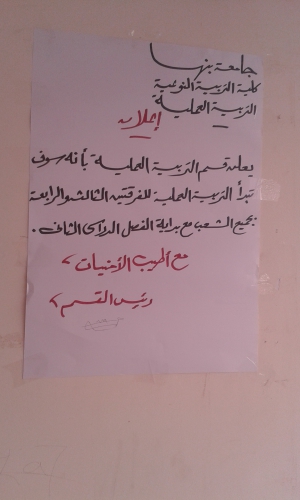 جامعة بنها
كلية التربية النوعية
التربية العملية
إعلان
يعلن قسم التربية العملية بأنه سوف
تبدأ التربية العملية للفرقتين الثالثة والرابعة
بجميع الشعب مع بداية الفصل الدراسى الثانى.
مع أطيب الأمنيات،
رئيس القسم،